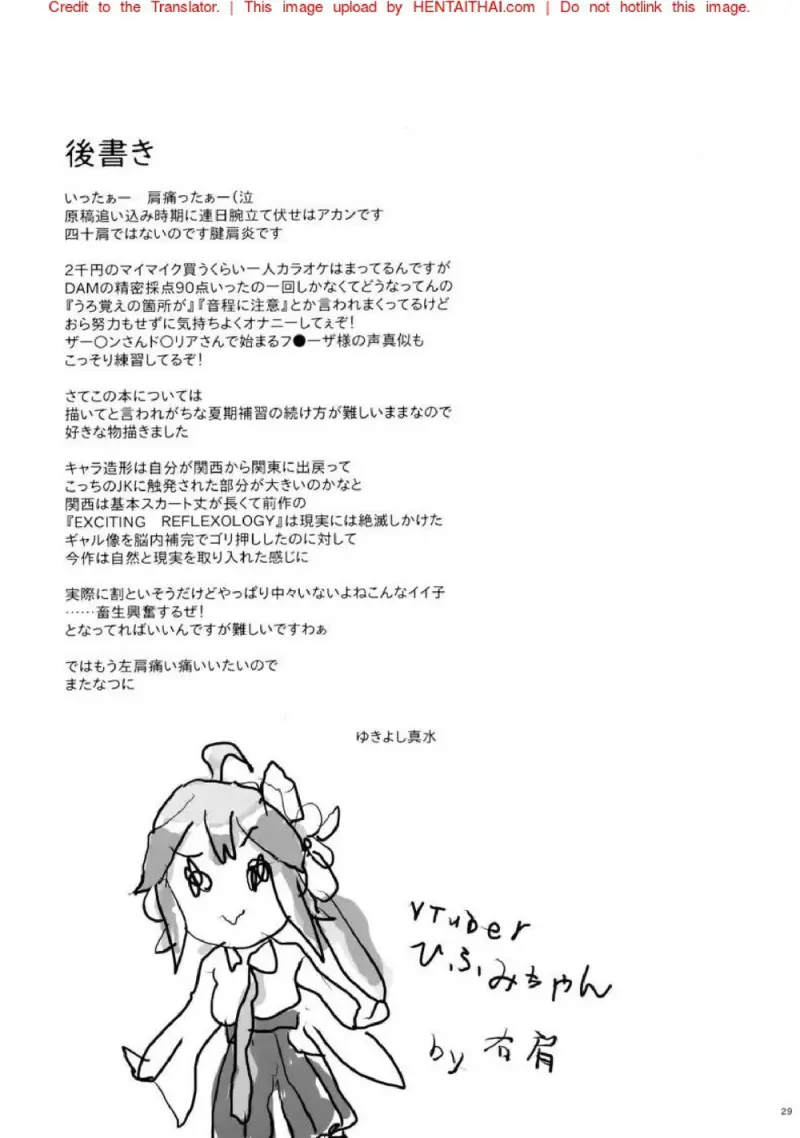 Credit to the Translator. | This image upload by HENTAITHAI.com | Do not hotlink this image.
後書き
いったぁー　肩痛ったぁー（泣
原稿追い込み時期に連日腕立て伏せはアカンです
四十肩ではないのです腱肩炎です
2千円のマイマイク買うくらい一人カラオケはまってるんですが
DAMの精密採点90点いったの一回しかなくてどうなってんの
『うろ覚えの箇所が』『音程に注意』とか言われまくってるけど
おら努力もせずに気持ちよくオナニーしてぇぞ！
ザー〇ンさんド〇リアさんで始まるフ●ーザ様の声真似も
こっそり練習してるぞ！
さてこの本については
描いてと言われがちな夏期補習の続け方が難しいままなので
好きな物描きました
キャラ造形は自分が関西から関東に出戻って
こっちのJKに触発された部分が大きいのかなと
関西は基本スカート丈が長くて前作の
『EXCITING　REFLEXOLOGY』は現実には絶滅しかけた
ギャル像を脳内補完でゴリ押ししたのに対して
今作は自然と現実を取り入れた感じに
実際に割といそうだけどやっぱり中々いないよねこんなイイ子
……畜生興奮するぜ！
となってればいいんですが難しいですわぁ
ではもう左肩痛い痛いいたいので
またなつに
ゆきよし真水
VTuber
ひふみちゃん
by 右肩
29